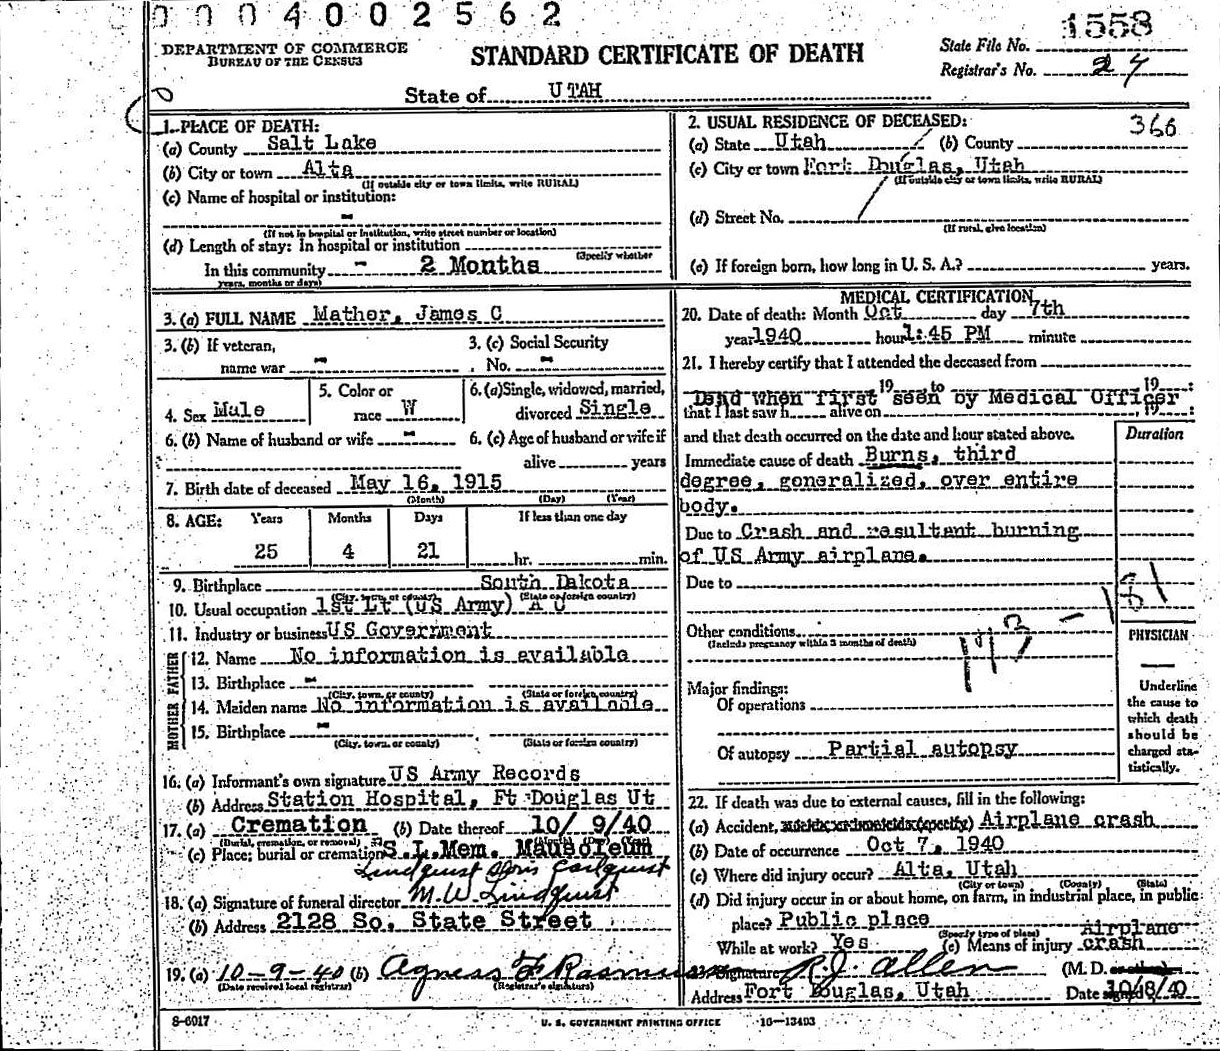 0004002562
1558
DEPARTMENT OF COMMERCE
BUREAU OF THE CENSUS
STANDARD CERTIFICATE OF DEATH
State File No.
Registrar's No. 27
State of UTAH
1. PLACE OF DEATH:
(a) County Salt Lake
(b) City or town Alta
(If outside city or town limits, write RURAL)
(c) Name of hospital or institution:
-
(If not in hospital or institution, write street number or location)
(d) Length of stay: In hospital or institution
(Specify whether
In this community - 2 Months
years, months or days)
2. USUAL RESIDENCE OF DECEASED: 366
(a) State Utah (b) County
(c) City or town Fort Douglas, Utah
(If outside city or town limits, write RURAL)
(d) Street No.
(If rural, give location)
(e) If foreign born, how long in U. S. A.? years.
3. (a) FULL NAME Mather, James C
3. (b) If veteran, 3. (c) Social Security
name war - No. -
4. Sex Male 5. Color or race W 6. (a) Single, widowed, married, divorced Single
6. (b) Name of husband or wife - 6. (c) Age of husband or wife if
alive years
7. Birth date of deceased May 16, 1915
(Month) (Day) (Year)
8. AGE: Years Months Days If less than one day
25 4 21 hr. min.
9. Birthplace South Dakota
(City, town, or county) (State or foreign country)
10. Usual occupation 1st Lt (US Army) A C
11. Industry or business US Government
FATHER
12. Name No information is available
13. Birthplace -
(City, town, or county) (State or foreign country)
MOTHER
14. Maiden name No information is available
15. Birthplace -
(City, town, or county) (State or foreign country)
16. (a) Informant's own signature US Army Records
(b) Address Station Hospital, Ft Douglas Ut
17. (a) Cremation (b) Date thereof 10/ 9/40
(Burial, cremation, or removal)
(c) Place; burial or cremation S.L.Mem. Mausoleum
Lindquist
M. W. Lindquist
18. (a) Signature of funeral director
(b) Address 2128 So. State Street
19. (a) 10-9-40 (b) Agness F Rasmussen
(Date received local registrar) (Registrar's signature)
MEDICAL CERTIFICATION
20. Date of death: Month Oct day 7th
year 1940 hour 1:45 PM minute
21. I hereby certify that I attended the deceased from
19 to 19 :
Dead when first seen by Medical Officer
that I last saw h alive on , 19 :
and that death occurred on the date and hour stated above. Duration
Immediate cause of death Burns, third
degree, generalized, over entire
body.
Due to Crash and resultant burning
of US Army airplane.
Due to
Other conditions
(Include pregnancy within 3 months of death)
PHYSICIAN
Major findings:
Of operations
Of autopsy Partial autopsy
Underline
the cause to
which death
should be
charged sta-
tistically.
22. If death was due to external causes, fill in the following:
(a) Accident, suicide, or homicide (specify) Airplane crash
(b) Date of occurrence Oct 7, 1940
(c) Where did injury occur? Alta, Utah
(City or town) (County) (State)
(d) Did injury occur in or about home, on farm, in industrial place, in public
place? Public place
(Specify type of place)
While at work? Yes (e) Means of injury Airplane crash
23. Signature R. J. Allen (M. D. or other)
Address Fort Douglas, Utah Date signed 10/8/40
8-6917 U. S. GOVERNMENT PRINTING OFFICE 16-13493